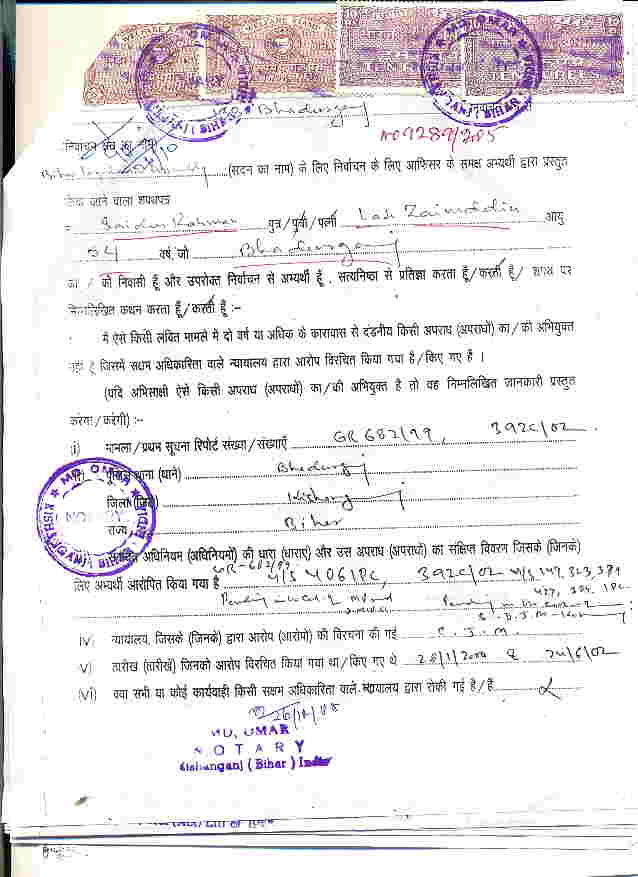 WELFARE STAMP
MD. OMAR ★ KISHANGANJ BIHAR
Bhadurganj
निर्वाचन क्षेत्र का नाम
No 9289/2005
(सदन का नाम) के लिए निर्वाचन के लिए आफिसर के समक्ष अभ्यर्थी द्वारा प्रस्तुत
किये जाने वाला शपथपत्र
Saidur Rahman पुत्र/पुत्री/पत्नी Late Zainuddin आयु
54 वर्ष, जो Bhadurganj
का / की निवासी हूँ और उपरोक्त निर्वाचन से अभ्यर्थी हूँ , सत्यनिष्ठा से प्रतिज्ञा करता हूँ/करती हूँ/ शपथ पर
निम्नलिखित कथन करता हूँ/करती हूँ :-
में ऐसे किसी लंबित मामले में दो वर्ष या अधिक के कारावास से दंडनीय किसी अपराध (अपराधों) का/की अभियुक्त
नहीं हूँ जिसमें सक्षम अधिकारिता वाले न्यायालय द्वारा आरोप विरचित किया गया है/किए गए है ।
(यदि अभिसाक्षी ऐसे किसी अपराध (अपराधों) का/की अभियुक्त है तो वह निम्नलिखित जानकारी प्रस्तुत
करेगा/करेगी) :-
(i) मामला/प्रथम सूचना रिपोर्ट संख्या/संख्याएँ GR 682/99, 392C/02
पुलिस थाना (थाने) Bhadurganj
जिला (जिले) Kishanganj
राज्य Bihar
MD. OMAR ★ KISHANGANJ BIHAR ★ NOTARY
अधिनियम (अधिनियमों) की धारा (धाराएं) और उस अपराध (अपराधों) का संक्षिप्त विवरण जिसके (जिनके)
GR-682/99
लिए अभ्यर्थी आरोपित किया गया है U/S 406 IPC, 392C/02 U/S 147, 323, 379
427, 324 IPC
Pending in Pending in
S.D.J.M.
IV) न्यायालय, जिसके (जिनके) द्वारा आरोप (आरोपों) की विरचना की गई C.J.M.
V) तारीख (तारीखें) जिनको आरोप विरचित किया गया था/किए गए थे 28/1/2000 & 24/6/02
(VI) क्या सभी या कोई कार्यवाही किसी सक्षम अधिकारिता वाले न्यायालय द्वारा रोकी गई है/हैं
MD. OMAR
NOTARY
Kishanganj ( Bihar ) India